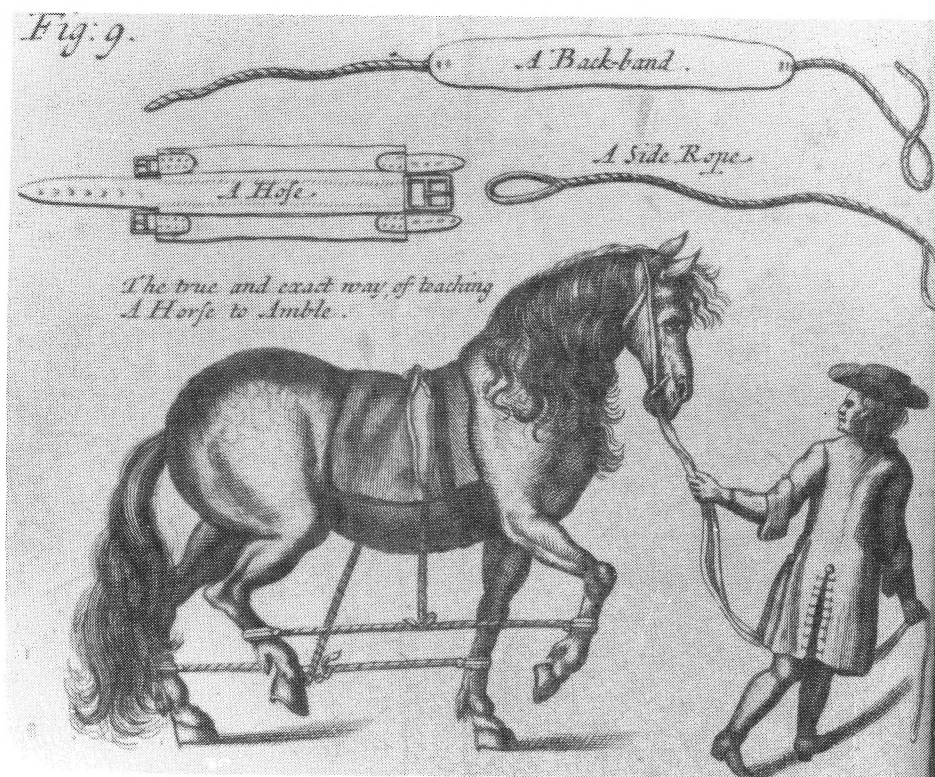 Fig: 9.
A Back-band.
A Hoſe.
A Side Rope
The true and exact way of teaching
A Horſe to Amble.